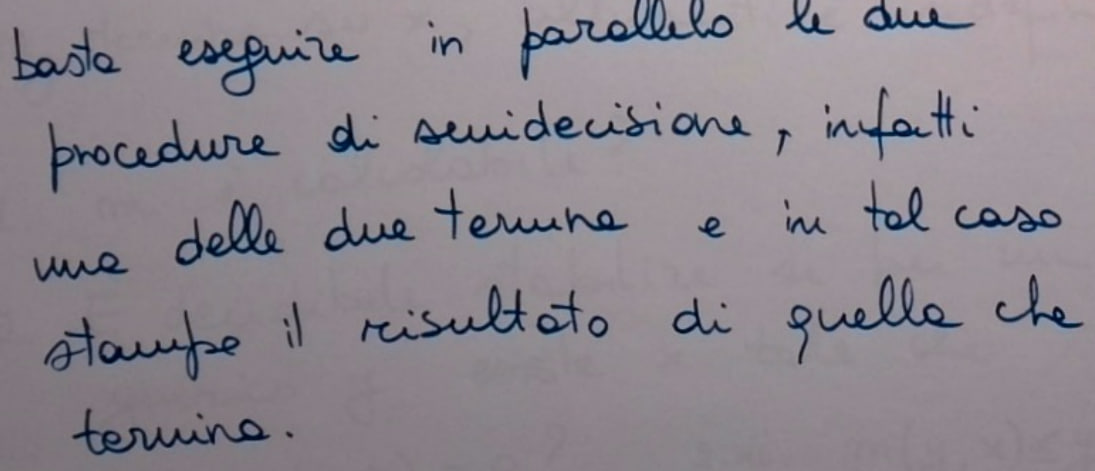 basta eseguire in parallelo le due
procedure di semidecisione, infatti
una delle due termina e in tal caso
stampa il risultato di quella che
termina.